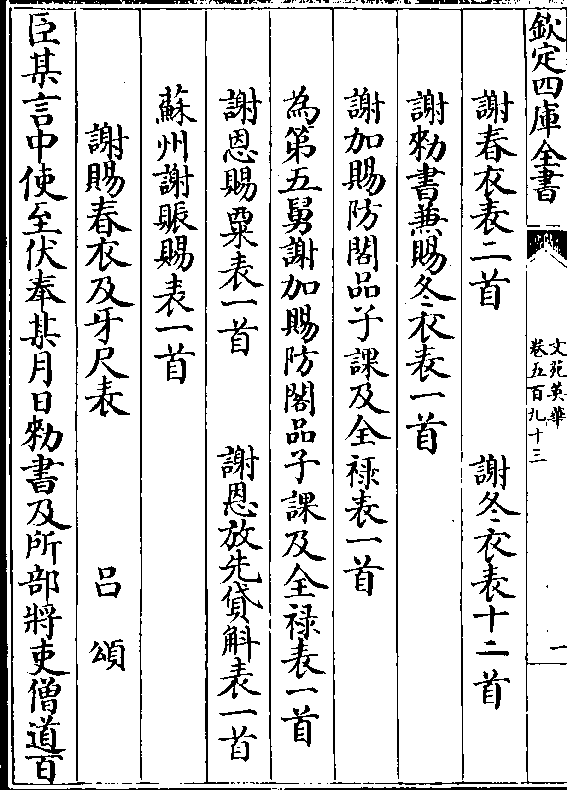 欽定四庫全書
文苑英華
卷五百九十三
一
謝春衣表二首 謝冬衣表十二首
謝勑書兼賜冬衣表一首
謝加賜防閤品子課及全禄表一首
為第五舅謝加賜防閤品子課及全禄表一首
謝恩賜粟表一首 謝恩放先貸斛表一首
蘇州謝賑賜表一首
謝賜春衣及牙尺表 吕頌
臣某言中使至伏奉某月日勑書及所部將吏僧道百